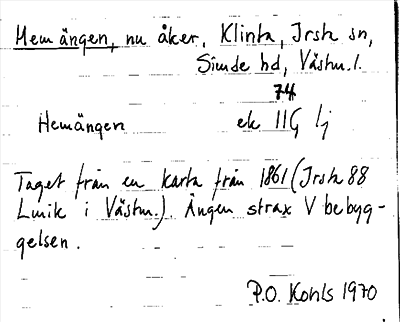 Hemängen, nu åker, Klinta, Irsta sn,
Siende hd, Västm.l.
74
Hemängen ek 11G lj
Taget från en karta från 1861 (Irsta 88
Lmik i Västm.). Ängen strax V bebyg-
gelsen.
P.O. Kohls 1970